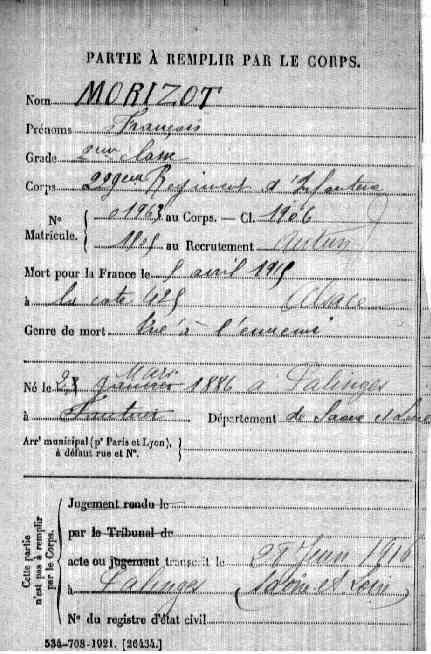 PARTIE À REMPLIR PAR LE CORPS.
Nom MORIZOT
Prénoms François
Grade 2me classe
Corps Regiment d'Infanterie
N° Matricule. 01963 au Corps. — Cl. 1906
au Recrutement Autun
Mort pour la France le avril 1915
à la cote 425 Alsace
Genre de mort tué à l'ennemi
Mars
Né le 28 janvier 1886 à Palinges
à Département de Saone et Loire
Arrt municipal (pr Paris et Lyon),
à défaut rue et N°.
Cette partie n'est pas à remplir par le Corps.
Jugement rendu le
par le Tribunal de
acte ou jugement transcrit le 28 Juin 1916
à Palinges (Saône et Loire)
N° du registre d'état civil
534-708-1921. [26434.]